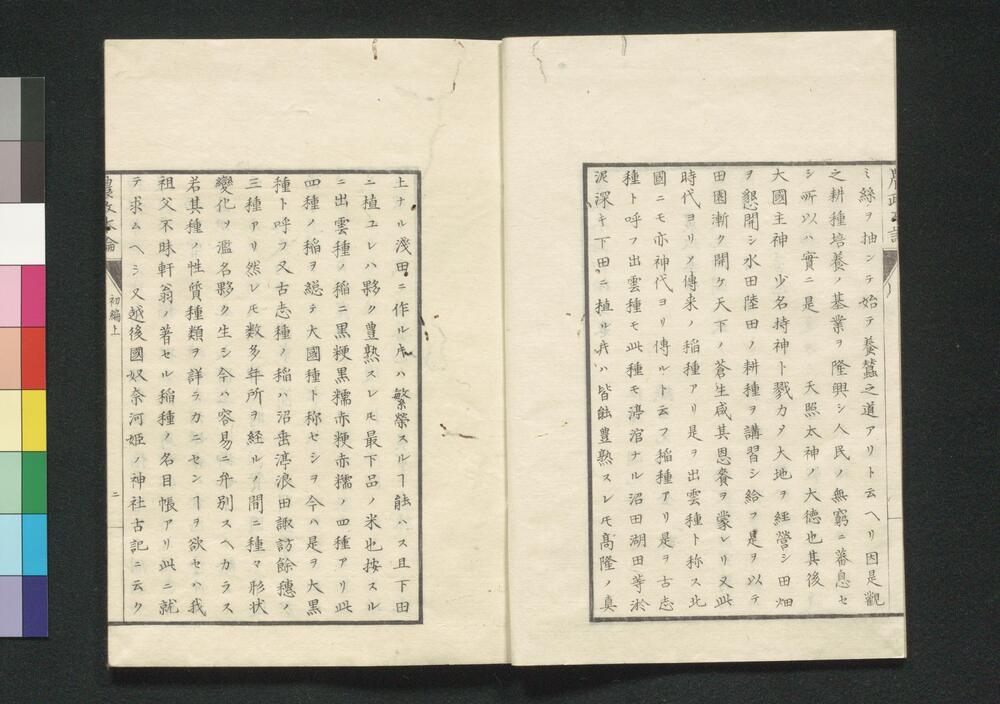 ミ絲ヲ抽ンテ始テ養蠶之道アリト云ヘリ因是觀
之耕種培養ノ基業ヲ隆興シ人民ノ無窮ニ蕃息セ
シ所以ハ實ニ是 天照太神ノ大徳也其後
大國主神 少名持神ト戮力メ大地ヲ経營シ田畑
ヲ懇開シ水田陸田ノ耕種ヲ講習シ給フ是ヲ以テ
田園漸ク開ケ天下ノ蒼生咸其恩養ヲ蒙レリ又此
時代ヨリノ傳来ノ稲種アリ是ヲ出雲種ト称ス北
國ニモ亦神代ヨリ傳ルト云フ稲種アリ是ヲ古志
種ト呼フ出雲種モ此種モ渟涫ナル沼田湖田等淤
泥深キ下田ニ植ル䒭ハ皆能豊熟スレモ髙隆ノ真
土ナル浅田ニ作ル䒭ハ繁榮スルヿ能ハス且下田
ニ植ユレハ夥ク豊熟スレモ最下品ノ米也按スル
ニ出雲種ノ稲ニ黒粳黒糯赤粳赤糯ノ四種アリ此
四種ノ稲ヲ総テ大國種ト称セシヲ今ハ是ヲ大黒
種ト呼フ又古志種ノ稲ハ沼垂渟浪田諏訪餘穂ノ
三種アリ然レモ数多年所ヲ経ルノ間ニ種々形状
變化ヲ濫名夥ク生シ今ハ容易ニ弁別スヘカラス
若其種ノ性質種類ヲ詳ラカニセンヿヲ欲セハ我
祖父不昧軒翁ノ著セル稲種ノ名目帳アリ此ニ就
テ求ムヘシ又越後國奴奈河姫ノ神社古記ニ云ク
農政本論
初編上
二